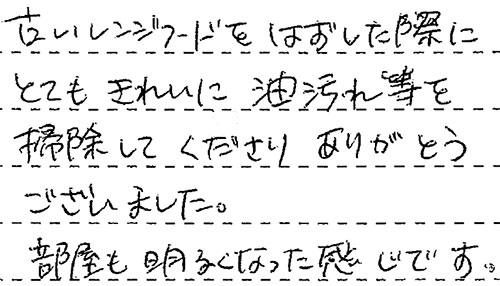 古いレンジフードをはずした際に
とてもきれいに油汚れ等を
掃除してくださりありがとう
ございました。
部屋も明るくなった感じです。